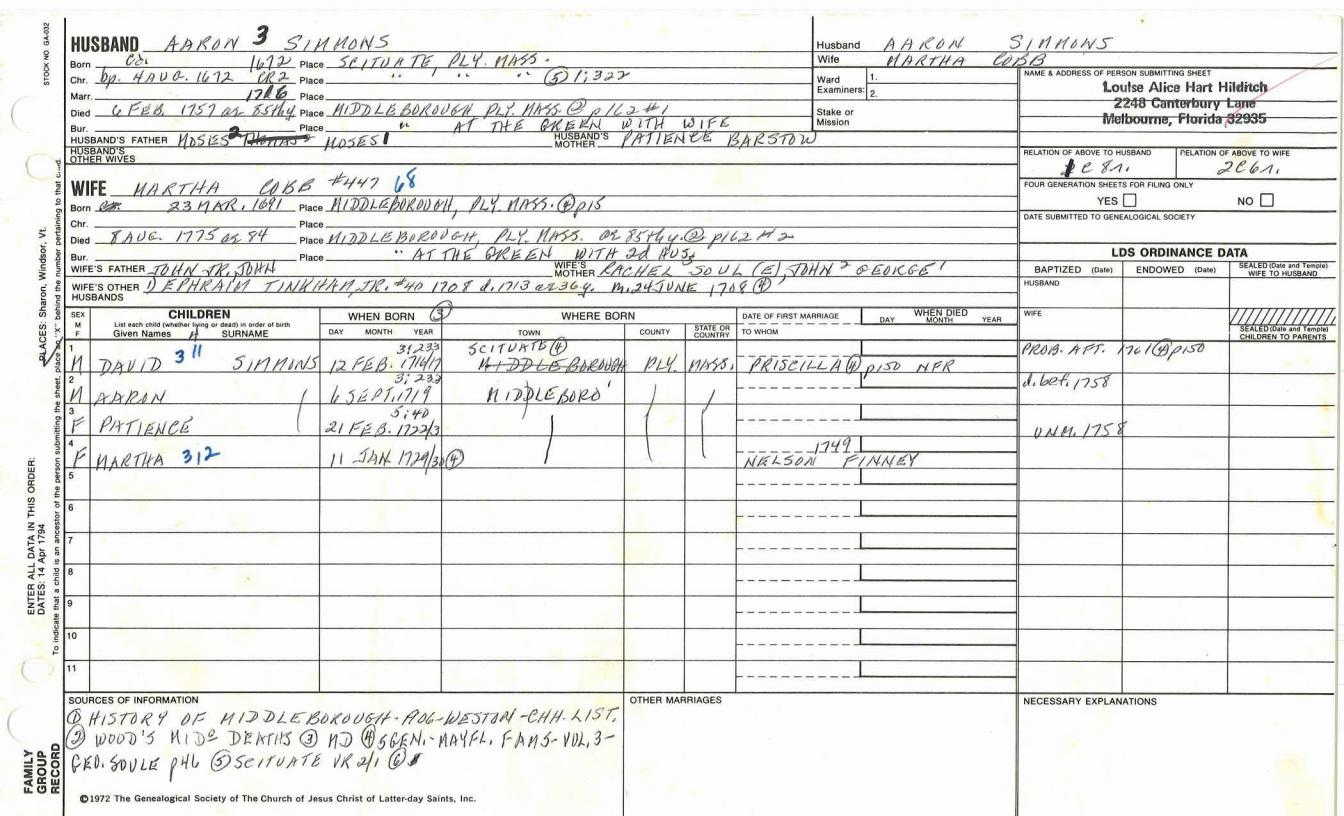 STOCK NO GA-032
HUSBAND AARON 3 SIMMONS
Born Ca. 1672 Place SCITUATE, PLY. MASS.
Chr. bp. 4 AUG. 1672 CR2 Place " " " (5) 1;322
Marr. 1716 Place
Died 6 FEB. 1757 ae 85thy Place MIDDLEBOROUGH PLY. MASS. (2) p162 #1
Bur. Place " AT THE GREEN WITH WIFE
HUSBAND'S FATHER MOSES 2 MOSES 1 HUSBAND'S MOTHER PATIENCE BARSTOW
HUSBAND'S OTHER WIVES
Husband AARON SIMMONS
Wife MARTHA COBB
Ward Examiners: 1.
2.
Stake or Mission
NAME & ADDRESS OF PERSON SUBMITTING SHEET
Louise Alice Hart Hilditch
2248 Canterbury Lane
Melbourne, Florida 32935
RELATION OF ABOVE TO HUSBAND RELATION OF ABOVE TO WIFE
1C8r. 2C6r.
FOUR GENERATION SHEETS FOR FILING ONLY
YES NO
DATE SUBMITTED TO GENEALOGICAL SOCIETY
WIFE MARTHA COBB #447 68
Born 23 MAR. 1691 Place MIDDLEBOROUGH, PLY. MASS. (4) p15
Chr. Place
Died 8 AUG. 1775 ae 84 Place MIDDLEBOROUGH, PLY. MASS. ae 85thy. (2) p162 #2
Bur. Place " AT THE GREEN WITH 2d HUS;
WIFE'S FATHER JOHN JR, JOHN WIFE'S MOTHER RACHEL SOUL (E), JOHN 2 GEORGE 1
WIFE'S OTHER HUSBANDS EPHRAIM TINKHAM, JR. #40 1708 d. 1713 ae 36y. m. 24 JUNE 1708 (4)
LDS ORDINANCE DATA
BAPTIZED (Date) ENDOWED (Date) SEALED (Date and Temple) WIFE TO HUSBAND
HUSBAND
WIFE
SEALED (Date and Temple) CHILDREN TO PARENTS
SEX M F CHILDREN WHEN BORN (3) WHERE BORN DATE OF FIRST MARRIAGE WHEN DIED
List each child (whether living or dead) in order of birth
Given Names SURNAME DAY MONTH YEAR TOWN COUNTY STATE OR COUNTRY TO WHOM DAY MONTH YEAR
1 3;233 SCITUATE (4) PROB. AFT. 1761 (4) p150
M DAVID 311 SIMMONS 12 FEB. 1716/7 MIDDLEBOROUGH PLY. MASS. PRISCILLA (4) p150 NFR
2 3;233 d. bef. 1758
M AARON 6 SEPT. 1719 MIDDLEBORO'
3 5;40
F PATIENCE 21 FEB. 1722/3 UNM. 1758
4 1749
F MARTHA 312 11 JAN 1729/30 (4) NELSON FINNEY
5
6
7
8
9
10
11
SOURCES OF INFORMATION
(1) HISTORY OF MIDDLEBOROUGH-1906-WESTON-CHH. LIST.
(2) WOOD'S MIDo DEATHS (3) MD (4) 5GEN.-MAYFL. FAMS-VOL. 3-
GEO. SOULE p46 (5) SCITUATE VR 2/1 (6)
OTHER MARRIAGES
NECESSARY EXPLANATIONS
©1972 The Genealogical Society of The Church of Jesus Christ of Latter-day Saints, Inc.
FAMILY GROUP RECORD
ENTER ALL DATA IN THIS ORDER:
DATES: 14 Apr 1794
PLACES: Sharon, Windsor, Vt.
To indicate that a child is an ancestor of the person submitting the sheet, place an "X" behind the number pertaining to that